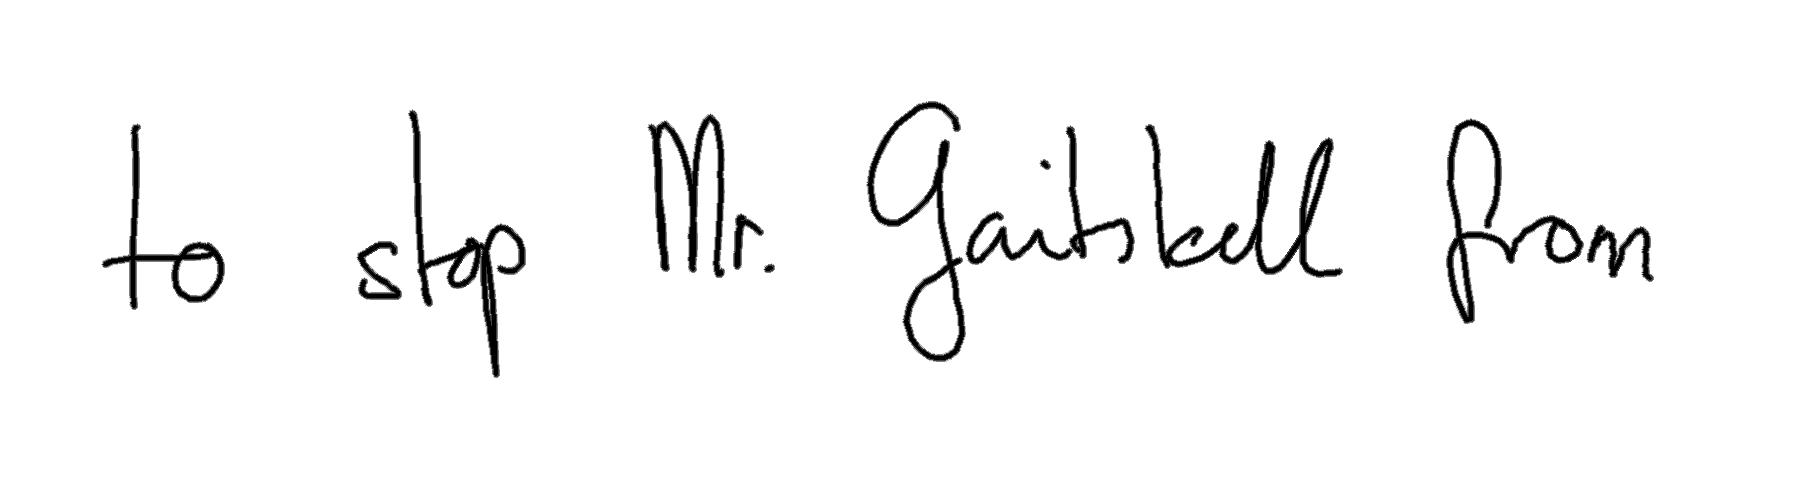 to stop Mr. Gaitskell from